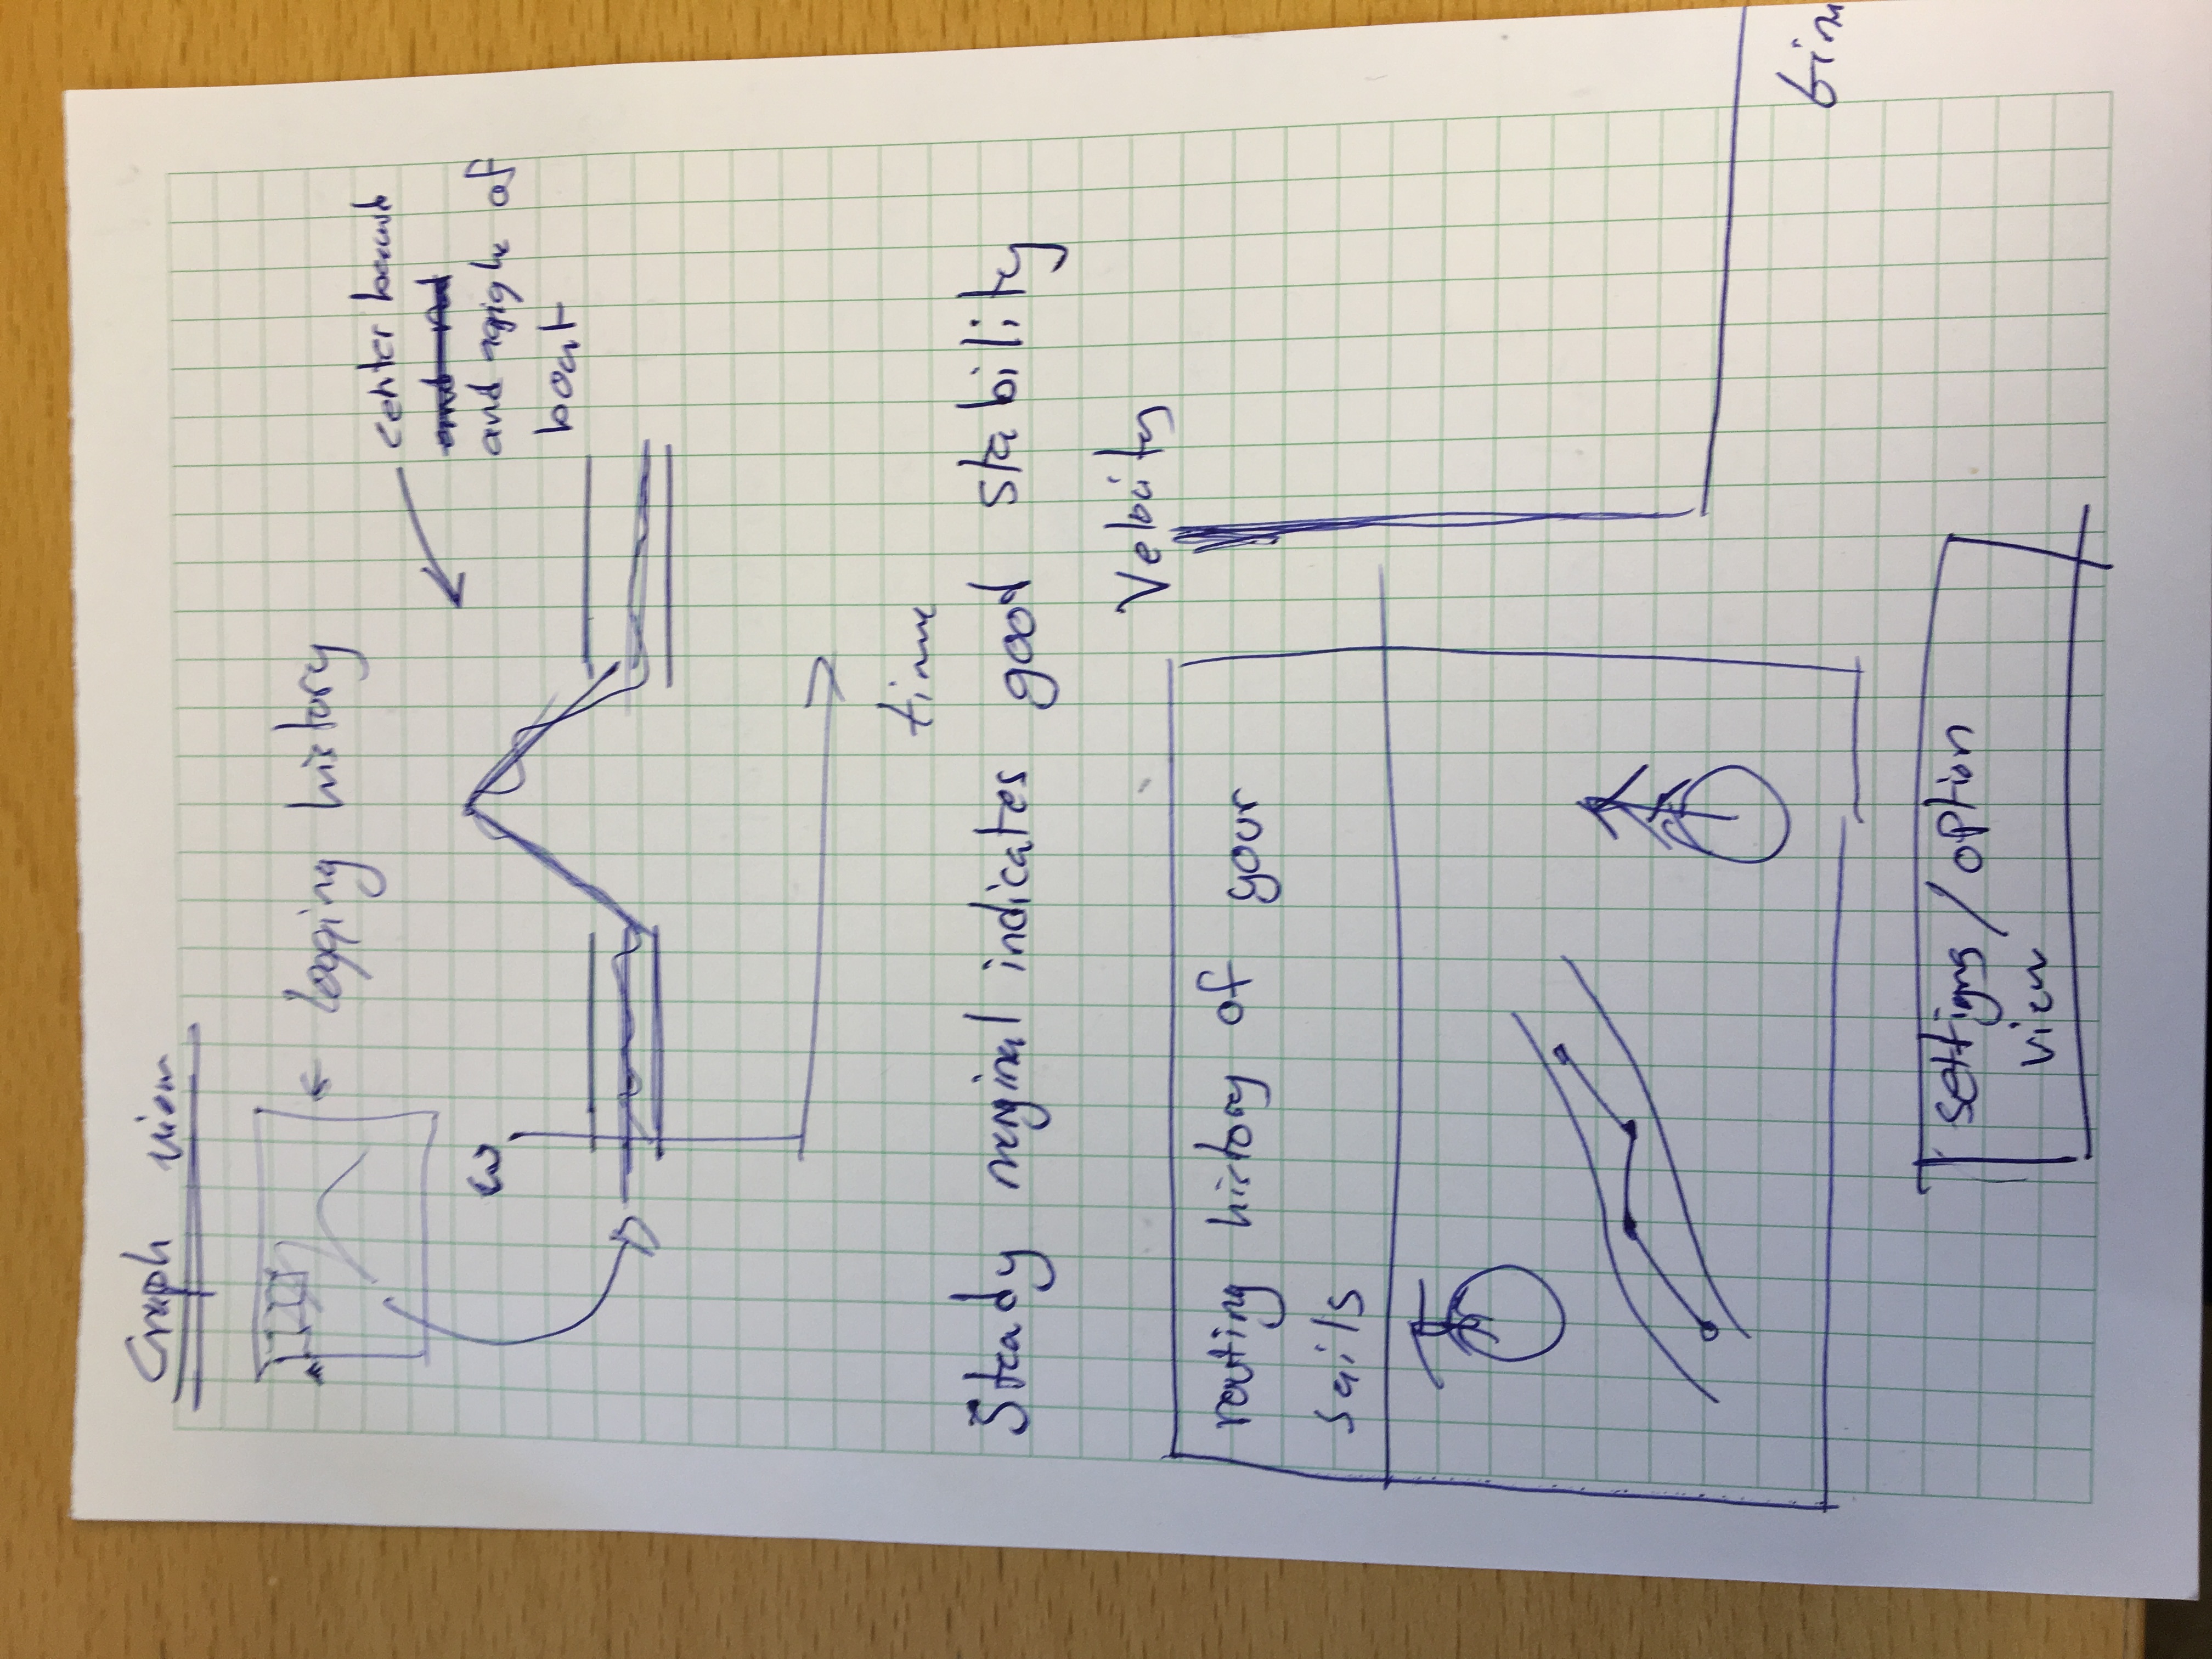 Graph view
← logging history
center board
and angle of
boat
ω
time
Steady marginal indicates good stability
Velocity
routing history of your
sails
tim
settigns / option
view